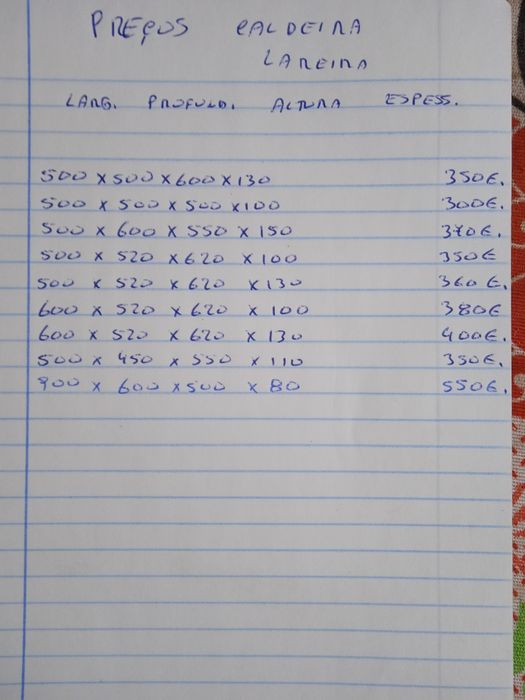 PREÇOS CALDEIRA
LAREIRA
LARG. PROFUND. ALTURA ESPESS.
500 x 500 x 600 x 130 350€.
500 x 500 x 500 x 100 300€.
500 x 600 x 550 x 150 370€.
500 x 520 x 620 x 100 350€
500 x 520 x 620 x 130 360€.
600 x 520 x 620 x 100 380€
600 x 520 x 620 x 130 400€.
500 x 450 x 550 x 110 350€.
900 x 600 x 500 x 80 550€.